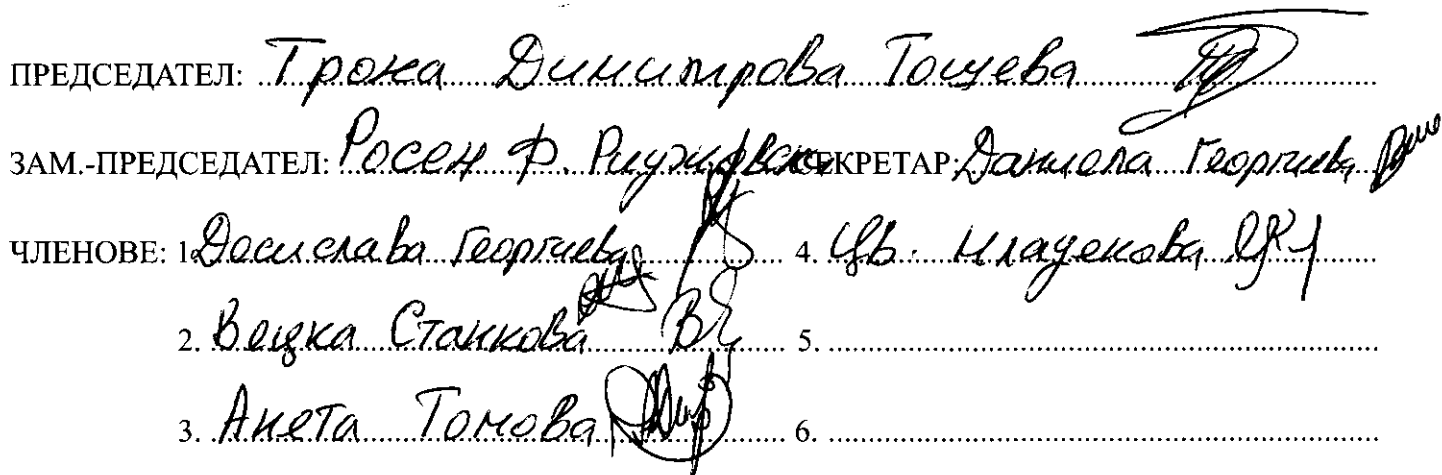 ПРЕДСЕДАТЕЛ: Трока Димитрова Тошева
ЗАМ.-ПРЕДСЕДАТЕЛ: Росен Ф. СЕКРЕТАР: Даниела Георгиева
ЧЛЕНОВЕ: 1. Десислава Георгиева 4. Цв. Младенова
2. Станкова 5.
3. Анета Томова 6.